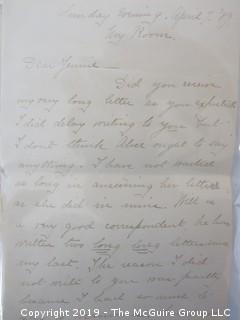 Sunday Evening. April 7. '89
My Room.
Dear Jennie
Did you receive
my very long letter as you expected
I did delay writing to you but
I don't think Alice ought to say
anything. I have not waited
as long in answering her letter
as she did in mine. Will is
a very good correspondent he has
written two long long letters since
my last. The reason I did
not write to you was partly
because I had so much to
Copyright 2019 - The McGuire Group LLC